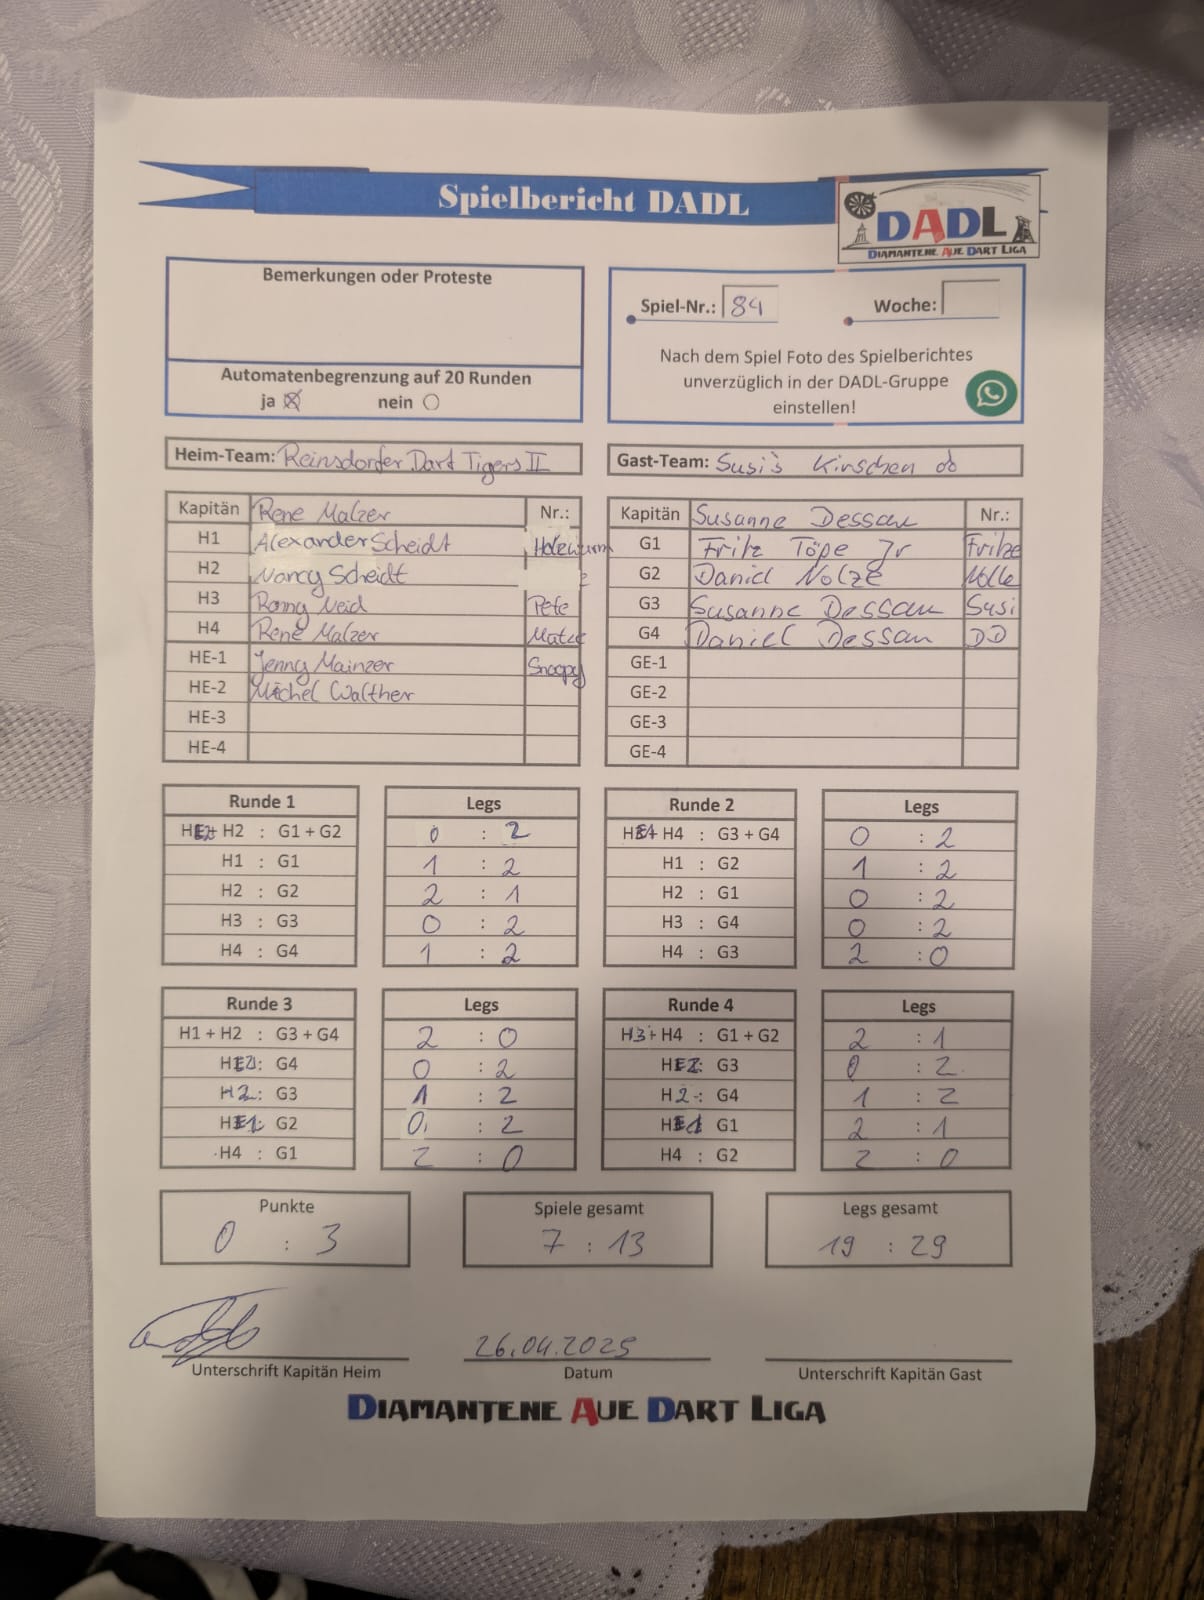 Spielbericht DADL
DADL
DIAMANTENE AUE DART LIGA
Bemerkungen oder Proteste
Automatenbegrenzung auf 20 Runden
ja nein
Spiel-Nr.: 84 Woche:
Nach dem Spiel Foto des Spielberichtes
unverzüglich in der DADL-Gruppe
einstellen!
Heim-Team: Reinsdorfer Dart Tigers II
Gast-Team: Susi's Kirschen
Kapitän Rene Malzer Nr.:
H1 Alexander Scheidt Holzwurm
H2 Nancy Scheidt
H3 Romy Neid Pete
H4 Rene Malzer
HE-1 Jenny Mainzer Snoopy
HE-2 Michel Walther
HE-3
HE-4
Kapitän Susanne Dessau Nr.:
G1 Fritz Töpe Jr Fritze
G2 Daniel Nolze Nolle
G3 Susanne Dessau Susi
G4 Daniel Dessau DD
GE-1
GE-2
GE-3
GE-4
Runde 1 Legs
HE2+ H2 : G1 + G2 0 : 2
H1 : G1 1 : 2
H2 : G2 2 : 1
H3 : G3 0 : 2
H4 : G4 1 : 2
Runde 2 Legs
HE1+ H4 : G3 + G4 0 : 2
H1 : G2 1 : 2
H2 : G1 0 : 2
H3 : G4 0 : 2
H4 : G3 2 : 0
Runde 3 Legs
H1 + H2 : G3 + G4 2 : 0
: G4 0 : 2
H2 : G3 1 : 2
HE1 : G2 0 : 2
H4 : G1 2 : 0
Runde 4 Legs
H3 + H4 : G1 + G2 2 : 1
HE2 : G3 0 : 2
H2 : G4 1 : 2
HE1 : G1 2 : 1
H4 : G2 2 : 0
Punkte
0 : 3
Spiele gesamt
7 : 13
Legs gesamt
19 : 29
26.04.2025
Unterschrift Kapitän Heim Datum Unterschrift Kapitän Gast
DIAMANTENE AUE DART LIGA